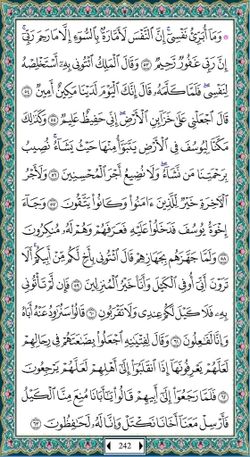 ۞ وَمَا أُبَرِّئُ نَفْسِي ۚ إِنَّ النَّفْسَ لَأَمَّارَةٌ بِالسُّوءِ إِلَّا مَا رَحِمَ رَبِّي ۚ
إِنَّ رَبِّي غَفُورٌ رَّحِيمٌ ۝٥٣ وَقَالَ الْمَلِكُ ائْتُونِي بِهِ أَسْتَخْلِصْهُ
لِنَفْسِي ۖ فَلَمَّا كَلَّمَهُ قَالَ إِنَّكَ الْيَوْمَ لَدَيْنَا مَكِينٌ أَمِينٌ ۝٥٤
قَالَ اجْعَلْنِي عَلَىٰ خَزَائِنِ الْأَرْضِ ۖ إِنِّي حَفِيظٌ عَلِيمٌ ۝٥٥ وَكَذَٰلِكَ
مَكَّنَّا لِيُوسُفَ فِي الْأَرْضِ يَتَبَوَّأُ مِنْهَا حَيْثُ يَشَاءُ ۚ نُصِيبُ
بِرَحْمَتِنَا مَن نَّشَاءُ ۖ وَلَا نُضِيعُ أَجْرَ الْمُحْسِنِينَ ۝٥٦ وَلَأَجْرُ
الْآخِرَةِ خَيْرٌ لِّلَّذِينَ آمَنُوا وَكَانُوا يَتَّقُونَ ۝٥٧ وَجَاءَ
إِخْوَةُ يُوسُفَ فَدَخَلُوا عَلَيْهِ فَعَرَفَهُمْ وَهُمْ لَهُ مُنكِرُونَ
۝٥٨ وَلَمَّا جَهَّزَهُم بِجَهَازِهِمْ قَالَ ائْتُونِي بِأَخٍ لَّكُم مِّنْ أَبِيكُمْ ۚ أَلَا
تَرَوْنَ أَنِّي أُوفِي الْكَيْلَ وَأَنَا خَيْرُ الْمُنزِلِينَ ۝٥٩ فَإِن لَّمْ تَأْتُونِي
بِهِ فَلَا كَيْلَ لَكُمْ عِندِي وَلَا تَقْرَبُونِ ۝٦٠ قَالُوا سَنُرَاوِدُ عَنْهُ أَبَاهُ
وَإِنَّا لَفَاعِلُونَ ۝٦١ وَقَالَ لِفِتْيَانِهِ اجْعَلُوا بِضَاعَتَهُمْ فِي رِحَالِهِمْ
لَعَلَّهُمْ يَعْرِفُونَهَا إِذَا انقَلَبُوا إِلَىٰ أَهْلِهِمْ لَعَلَّهُمْ يَرْجِعُونَ
۝٦٢ فَلَمَّا رَجَعُوا إِلَىٰ أَبِيهِمْ قَالُوا يَا أَبَانَا مُنِعَ مِنَّا الْكَيْلُ
فَأَرْسِلْ مَعَنَا أَخَانَا نَكْتَلْ وَإِنَّا لَهُ لَحَافِظُونَ ۝٦٣
242